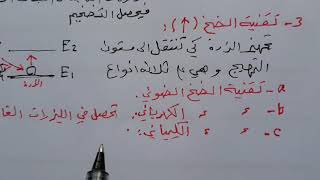 فيحصل التضخيم
3- تقنية الضخ (↑):
تهيج الذرة كي تنتقل الى مستوى
التهيج وهي ثلاثة انواع
E2
E1
الذرة
a- تقنية الضخ الضوئي.
b- " " الكهربائي. تحصل في الليزرات الغا
c- " " الكيميائي.